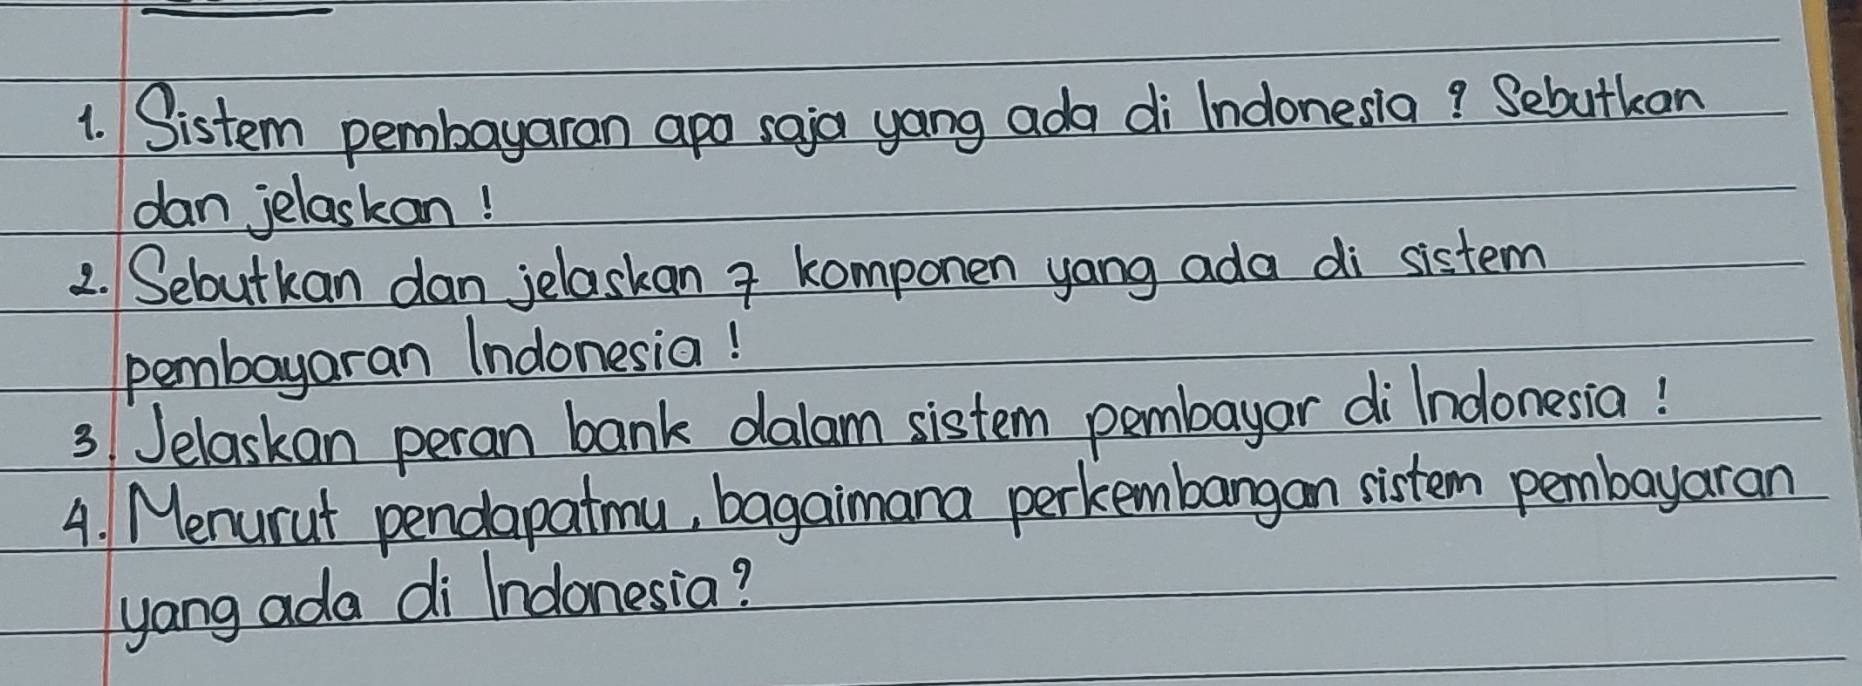 1. Sistem pembayaran apa saja yang ada di Indonesia? Sebutkan
dan jelaskan!
2. Sebutkan dan jelaskan 7 komponen yang ada di sistem
pembayaran Indonesia!
3. Jelaskan peran bank dalam sistem pembayar di Indonesia!
4. Menurut pendapatmu, bagaimana perkembangan sistem pembayaran
yang ada di Indonesia?